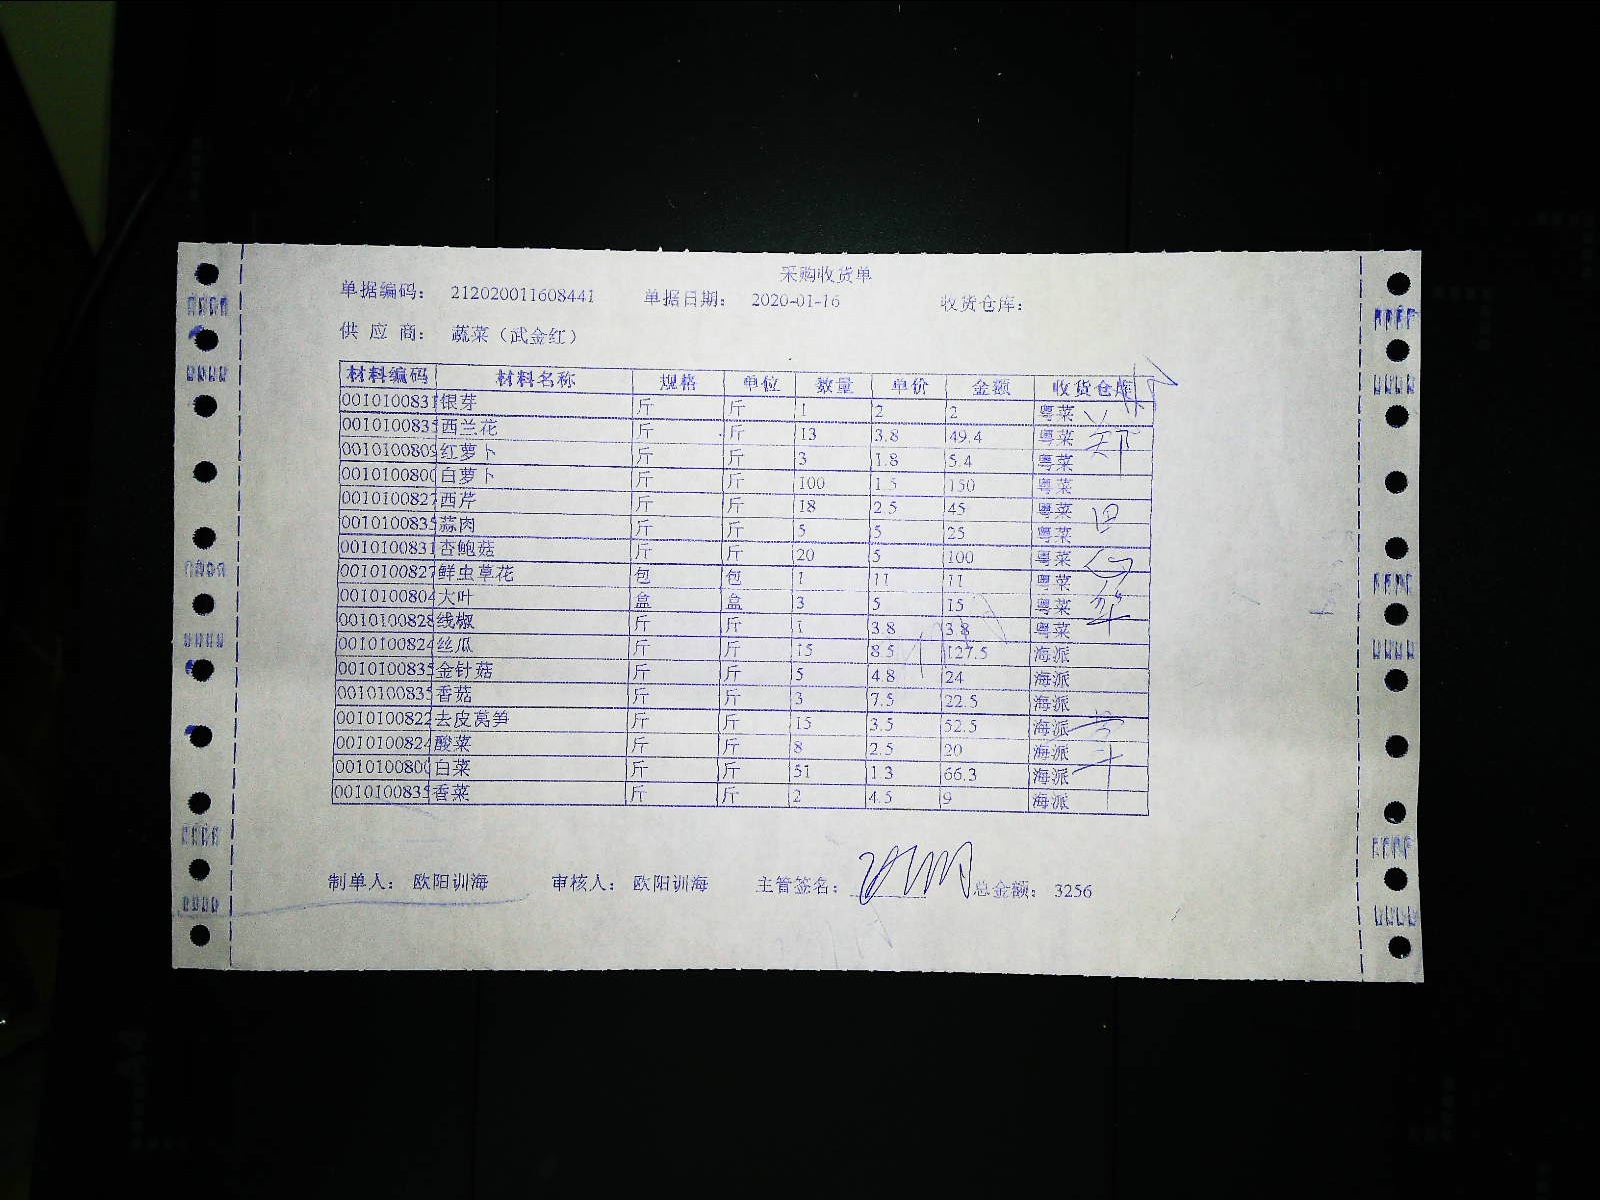 采购收货单
单据编码： 212020011608441 单据日期： 2020-01-16 收货仓库：
供 应 商： 蔬菜（武金红）
材料编码 材料名称 规格 单位 数量 单价 金额 收货仓库
0010100831 银芽 斤 斤 1 2 2 粤菜
001010083 西兰花 斤 斤 13 3.8 49.4 粤菜
001010080 红萝卜 斤 斤 3 1.8 5.4 粤菜
001010080 白萝卜 斤 斤 100 1.5 150 粤菜
001010082 西芹 斤 斤 18 2.5 45 粤菜
001010083 蒜肉 斤 斤 5 5 25 粤菜
0010100831 杏鲍菇 斤 斤 20 5 100 粤菜
001010082 鲜虫草花 包 包 1 11 11 粤菜
001010080 大叶 盒 盒 3 5 15 粤菜
0010100828 线椒 斤 斤 1 3.8 3.8 粤菜
0010100824 丝瓜 斤 斤 15 8.5 127.5 海派
001010083 金针菇 斤 斤 5 4.8 24 海派
001010083 香菇 斤 斤 3 7.5 22.5 海派
0010100822 去皮莴笋 斤 斤 15 3.5 52.5 海派
001010082 酸菜 斤 斤 8 2.5 20 海派
001010080 白菜 斤 斤 51 1.3 66.3 海派
001010083 香菜 斤 斤 2 4.5 9 海派
制单人： 欧阳训海 审核人： 欧阳训海 主管签名： 总金额： 3256